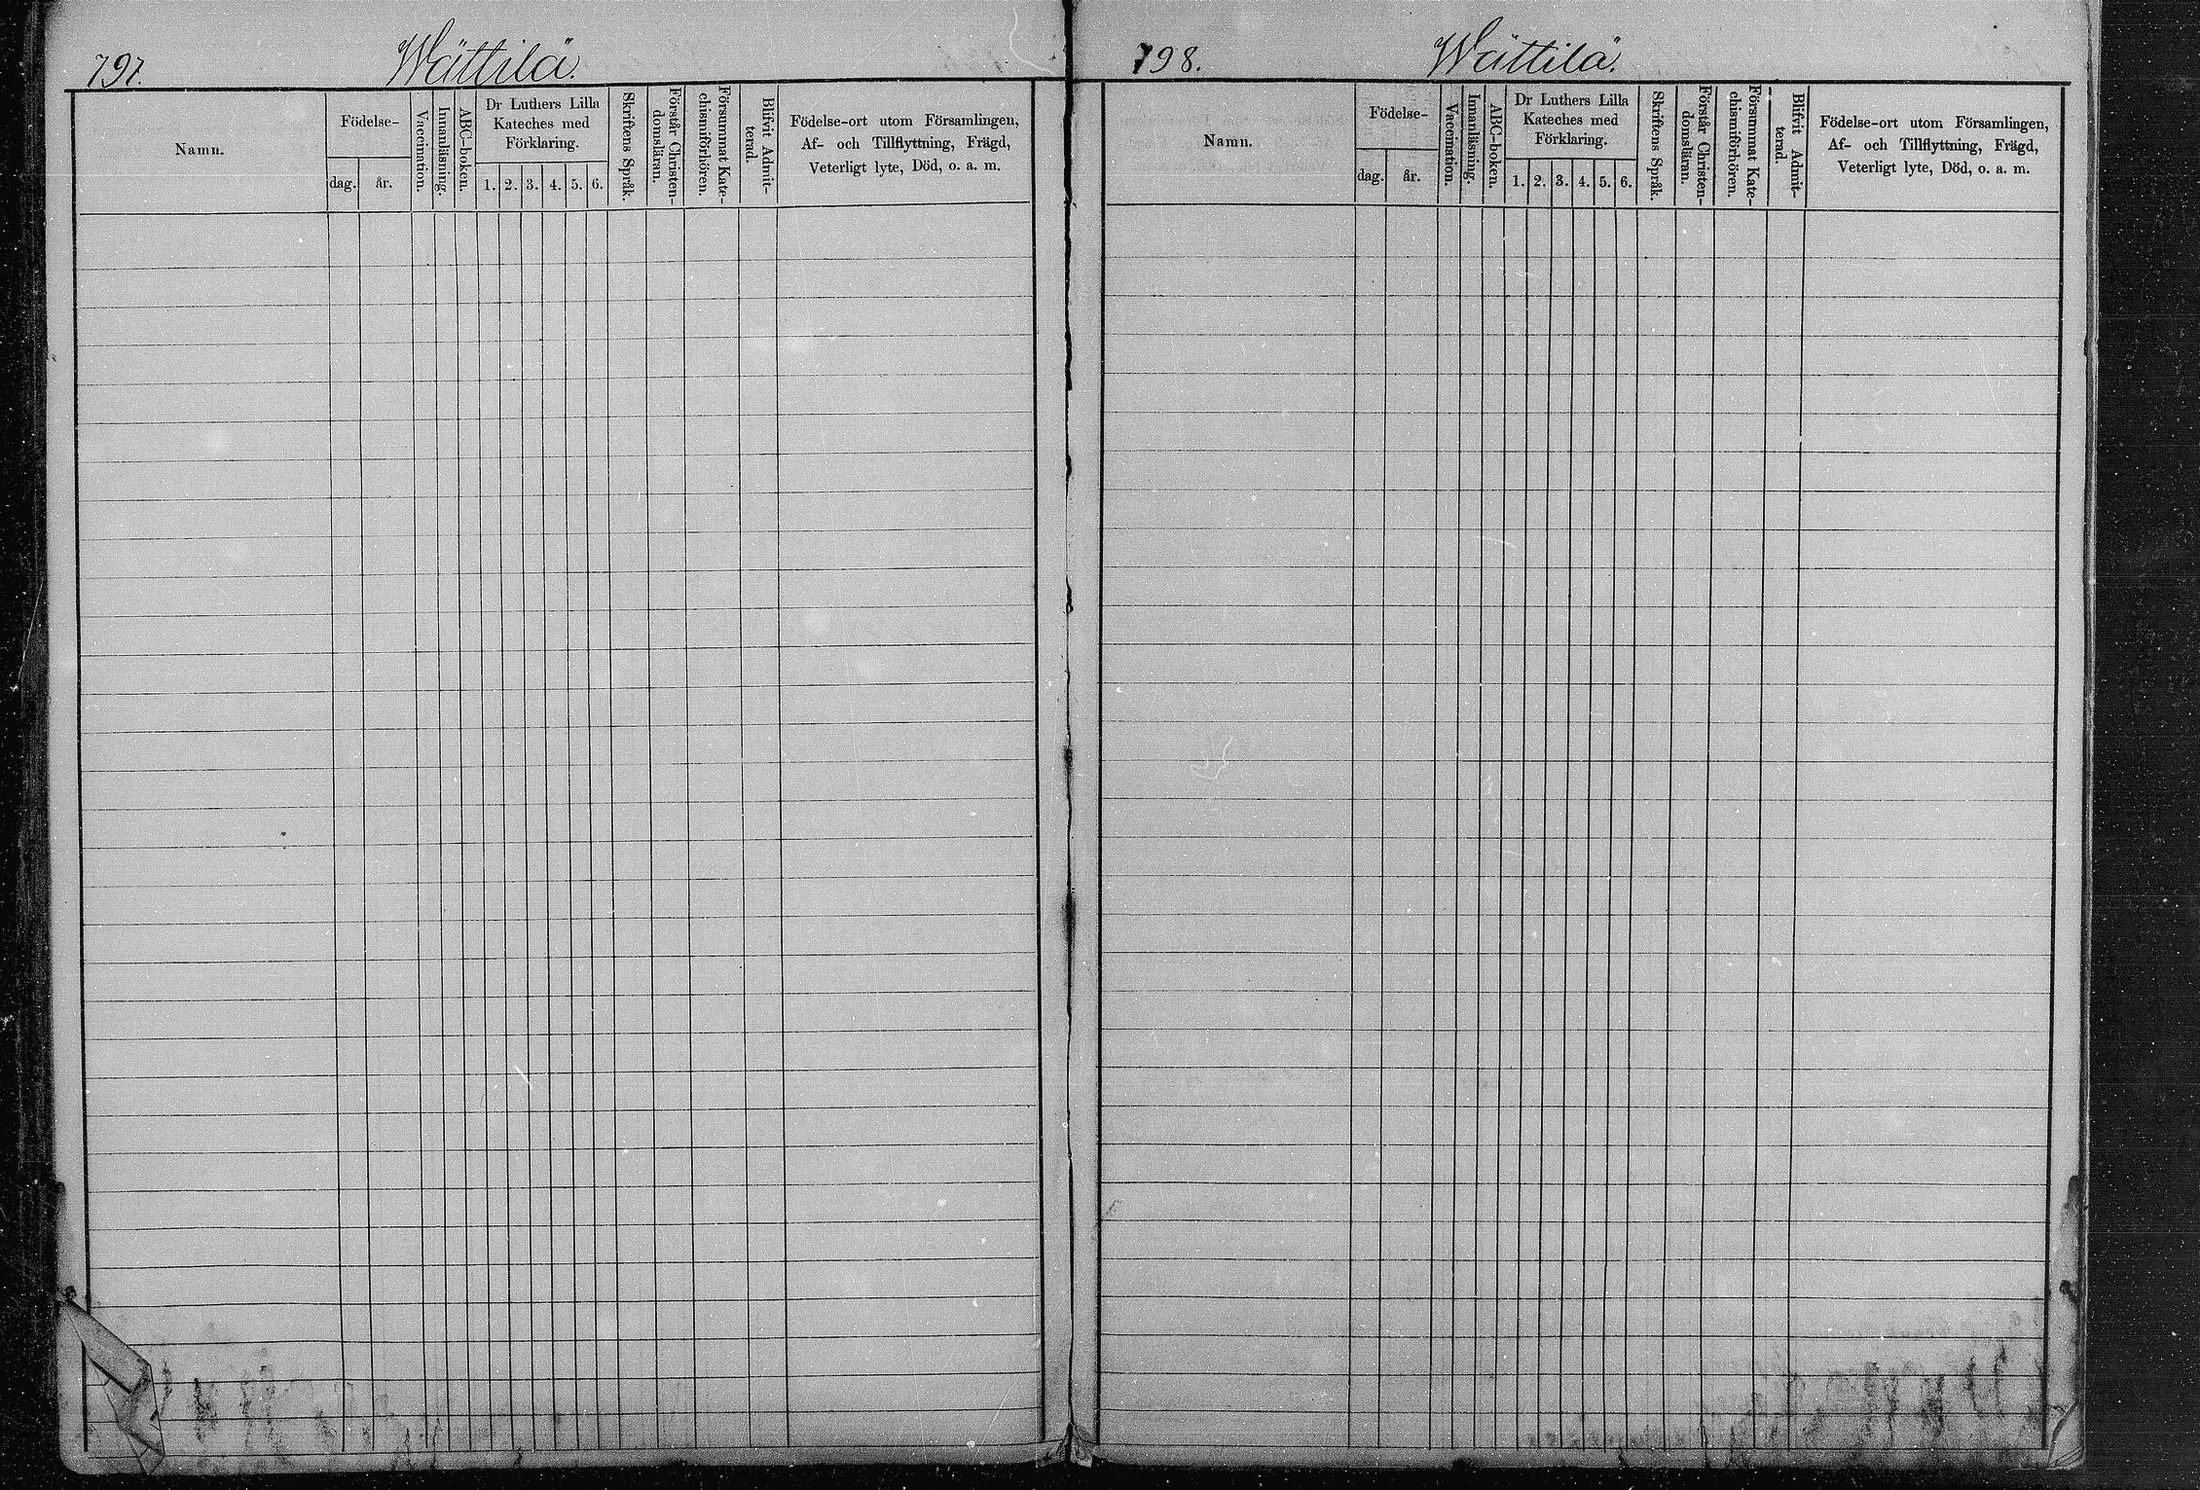 797.
Wättilä.
Namn.
Födelse-
dag.
år.
Vaccination.
Innanläsning.
ABC-boken.
Dr Luthers Lilla
Kateches med
Förklaring.
1. 2. 3. 4. 5. 6.
Skriftens Språk.
Förstår Christen-
domsläran.
Försummat Kate-
chismiförhören.
Blifvit Admit-
terad.
Födelse-ort utom Församlingen,
Af- och Tillflyttning, Frägd,
Veterligt lyte, Död, o. a. m.
798.
Wättilä.
Namn.
Födelse-
dag.
år.
Vaccination.
Innanläsning.
ABC-boken.
Dr Luthers Lilla
Kateches med
Förklaring.
1. 2. 3. 4. 5. 6.
Skriftens Språk.
Förstår Christen-
domsläran.
Försummat Kate-
chismiförhören.
Blifvit Admit-
terad.
Födelse-ort utom Församlingen,
Af- och Tillflyttning, Frägd,
Veterligt lyte, Död, o. a. m.